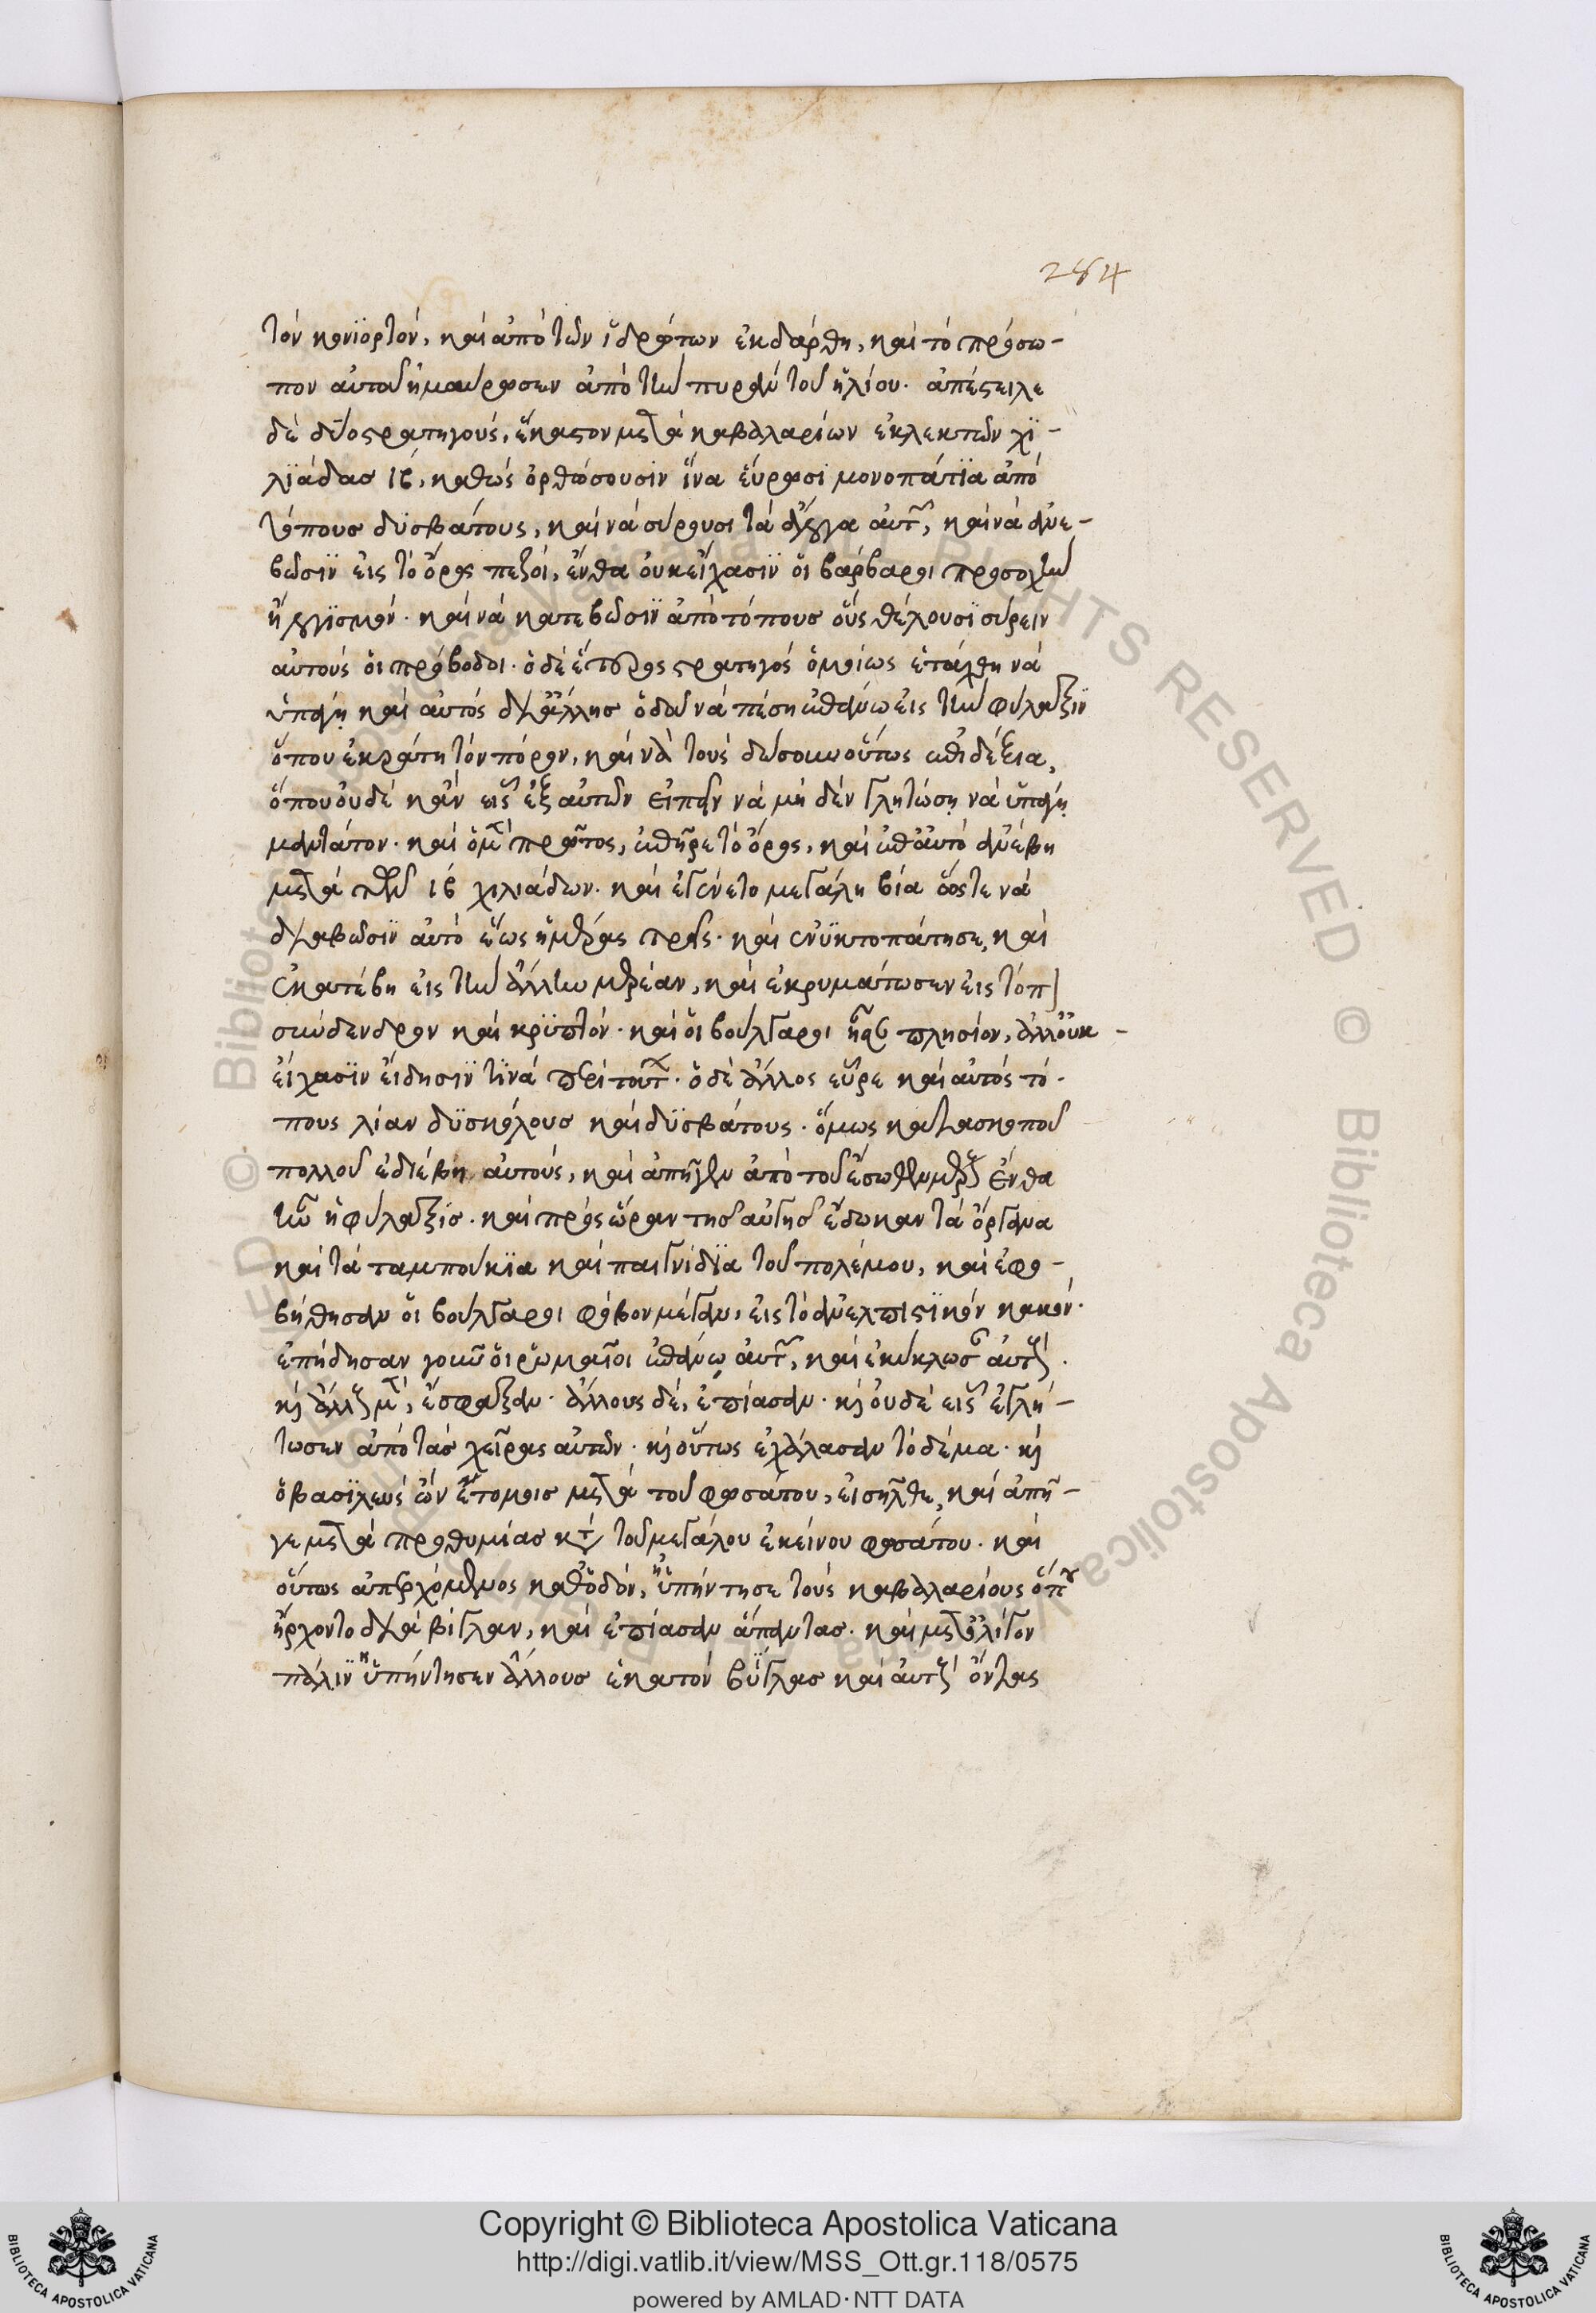 284
τὸν κονϊορτόν, καὶ ἀπὸ τῶν ἱδρώτων ἐκδάρθη, καὶ τὸ πρόσω-
πον αὐτοῦ ἠμαύρωσεν ἀπὸ τὴν πυρὰν τοῦ ἡλίου. ἀπέστειλε
δὲ δύο στρατηγούς, ἕκαστον μετὰ καβαλλαρίων ἐκλεκτῶν χϊ-
λϊάδας ιβ, καθὼς ὀρθώσουσιν ἵνα εὕρωσϊ μονοπάτϊα ἀπὸ
τόπους δϋσβάτους, καὶ νὰ σύρουσι τὰ ἄλογα αὐτῶν, καὶ νὰ ἀνε-
βῶσϊν εἰς τὸ ὄρος πεζοί, ἔνθα οὐκ εἴχασϊν οἱ βάρβαροι προσοχὴν
ἢ λογϊσμόν. καὶ νὰ κατεβῶσϊν ἀπὸ τόπους οὓς θέλουσϊ σύρειν
αὐτοὺς οἱ πρόβοδοι. ὁ δὲ ἕτερος στρατηγὸς ὁμοίως ἐτάχθη νὰ
ὑπάγῃ καὶ αὐτὸς δι' ἄλλης ὁδοῦ νὰ πέσῃ ἐπάνω εἰς τὴν φύλαξϊν
ὅπου ἐκράτη τὸν πόρον, καὶ νὰ τοὺς δώσουν οὕτως ἐπιδέξια,
ὅπου οὐδὲ κἂν εἷς ἐξ αὐτῶν εἰπεῖν νὰ μὴ δὲν γλητώσῃ νὰ ὑπάγῃ
μαντάτον. καὶ ὁ μὲν πρῶτος, ἐπῆρε τὸ ὄρος, καὶ ἐπ' αὐτὸ ἀνέβη
μετὰ τῶν ιβ χιλιάδων. καὶ ἐγένετο μεγάλη βία ὥστε νὰ
διαβῶσϊν αὐτὸ ἕως ἡμέρας τρεῖς. καὶ ἐνϋκτοπάτησε, καὶ
ἐκατέβη εἰς τὴν ἄλλην μερέαν, καὶ ἐκρυμάτωσεν εἰς τόπον
σύνδενδρον καὶ κρϋπτόν. καὶ οἱ βούλγαροι ἦσαν πλησίον, ἀλλ' οὐκ
εἴχασϊν εἴδησϊν τϊνὰ περὶ τούτου. ὁ δὲ ἄλλος εὗρε καὶ αὐτὸς τό-
πους λίαν δϋσκόλους καὶ δϋσβάτους. ὅμως κατασκοποῦ
πολλοῦ ἐδιέβη αὐτούς, καὶ ἀπῆγεν ἀπὸ τοῦ ἔσωθεν μέρους ἔνθα
ἦν ἡ φύλαξϊς. καὶ πρὸς ὥραν τῆς αὐγῆς ἔδωκαν τὰ ὄργανα
καὶ τὰ ταμπούκϊα καὶ παιγνίδϊα τοῦ πολέμου, καὶ ἐφο-
βήθησαν οἱ βούλγαροι φόβον μέγαν, εἰς τὸ ἀνελπιστϊκὸν κακόν.
ἐπήδησαν γοῦν οἱ ῥωμαῖοι ἐπάνω αὐτῶν, καὶ ἐκύκλωσαν αὐτούς.
κὶ ἄλλους μὲν, ἔσφαξαν. ἄλλους δέ, ἐπίασαν. κὶ οὐδὲ εἷς ἐγλή-
τωσεν ἀπὸ τὰς χεῖρας αὐτῶν. κὶ οὕτως ἐχάλασαν τὸ δέμα. κὶ
ὁ βασϊλεὺς ὢν ἕτοιμος μετὰ τοῦ φωσάτου, εἰσῆλθε, καὶ ἀπῆ-
γε μετὰ προθυμίας καὶ τοῦ μεγάλου ἐκείνου φωσάτου. καὶ
οὕτως ἀπερχόμενος καθ' ὁδόν, ὑπήντησε τοὺς καβαλλαρίους ὁποῦ
ἤρχοντο διὰ βίγλαν, καὶ ἐπίασαν ἅπαντας. καὶ μετ' ὀλίγον
πάλϊν ὑπήντησεν ἄλλους ἑκατὸν βϋγλας καὶ αὐτοὺς ὄντας
Copyright © Biblioteca Apostolica Vaticana
http://digi.vatlib.it/view/MSS_Ott.gr.118/0575
powered by AMLAD·NTT DATA